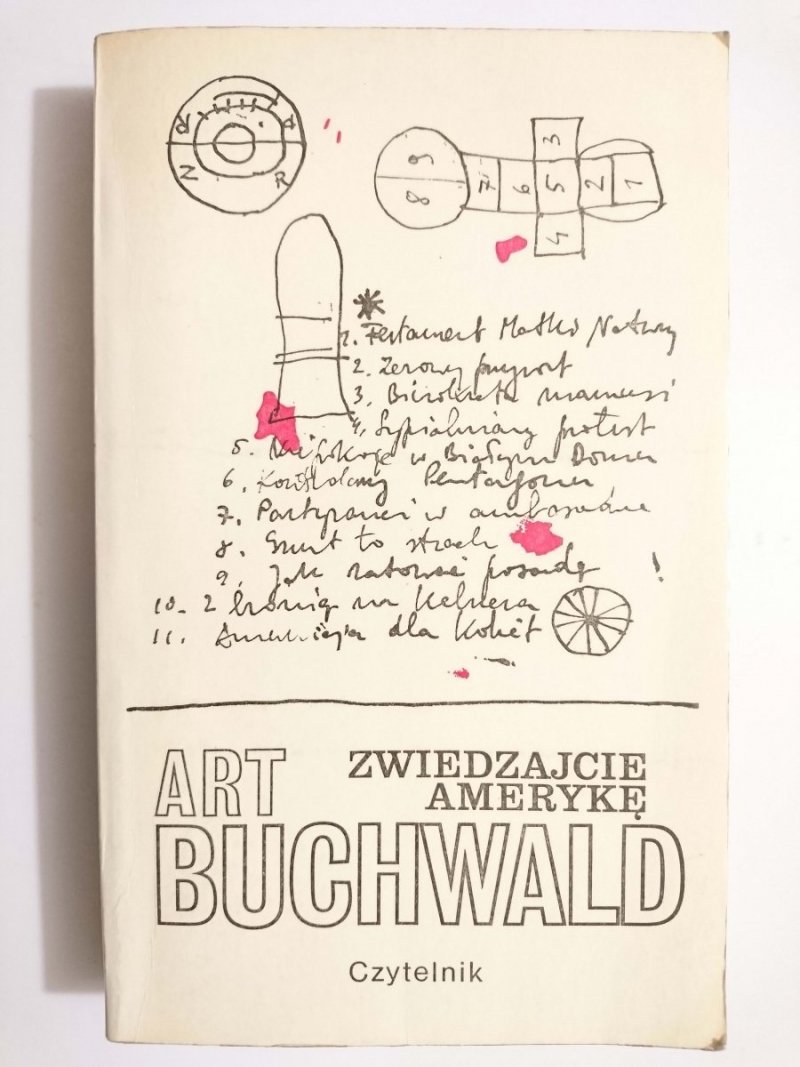 N
R
9
8
7
6
3
5
4
2
1
1. Testament Matki Natury
2. Zerowy przyrost
3. Biurokrata mamusi
4. Sypialniany protest
5. Niepokoje w Białym Domu
6. Pentagonu
7. Partyzanci w ambasadzie
8. Smut to strach
9. Jak ratować posadę !
10. Z bronią na kelnera
11. dla kobiet
ART
ZWIEDZAJCIE
AMERYKĘ
BUCHWALD
Czytelnik